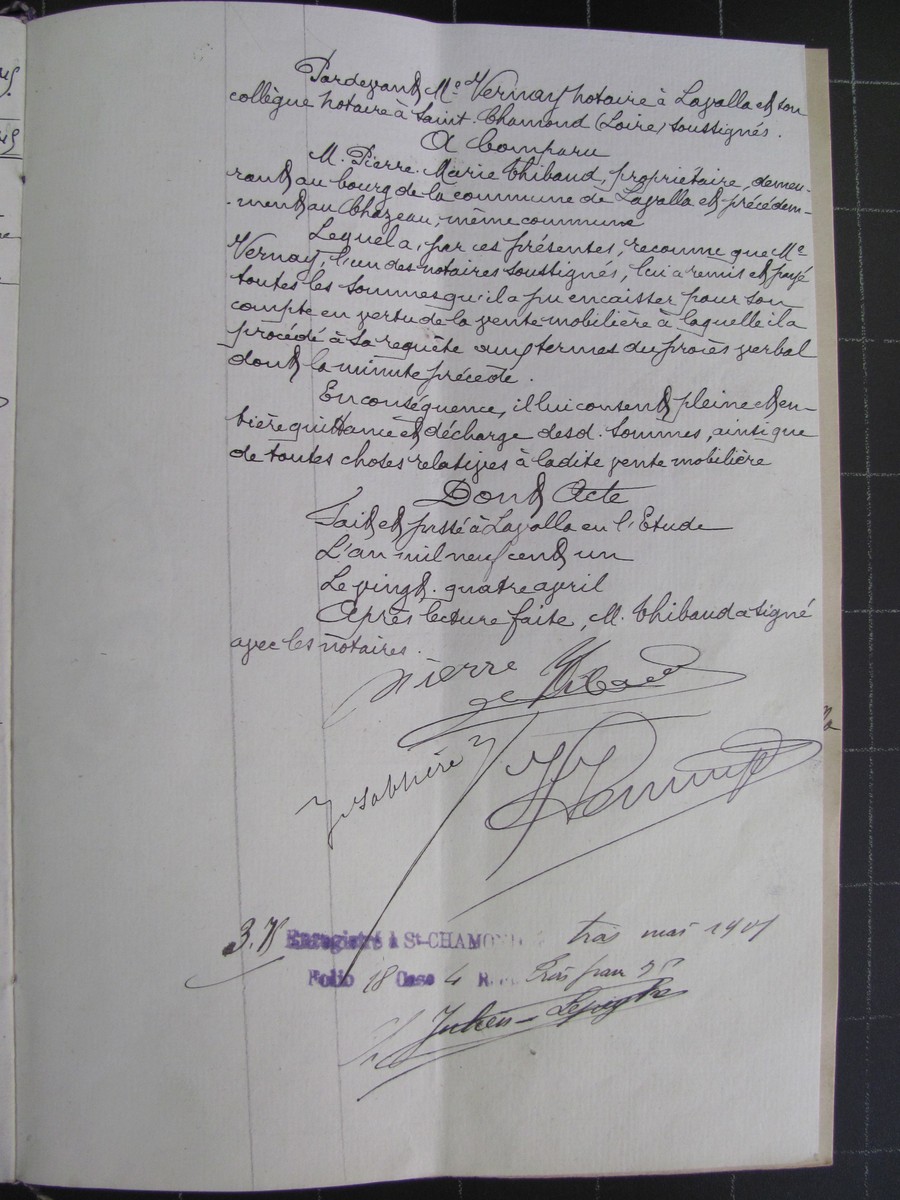 Pardevant Me Vernay notaire à Lavalla et son
collègue notaire à Saint-Chamond (Loire) soussignés.
A Comparu
M. Pierre-Marie Thibaud, propriétaire, demeu-
rant au bourg de la commune de Lavalla et précédem-
-ment au Chazeau, même commune
Lequel a, par ces présentes, reconnu que Me
Vernay, l'un des notaires soussignés, lui a remis et payé
toutes les sommes qu'il a pu encaisser pour son
compte en vertu de la vente mobilière à laquelle il a
procédé à sa requête aux termes du procès verbal
dont la minute précède.
En conséquence, il lui consent pleine et en-
tière quittance et décharge desd. sommes, ainsi que
de toutes choses relatives à ladite vente mobilière
Dont Acte
Fait et passé à Lavalla en l'Etude
L'an mil neuf cent un
Le vingt-quatre avril
Après lecture faite, M. Thibaud a signé
avec les notaires.
Pierre
Thibaud
Vernay
3.75 Enregistré à St-CHAMOND trois mai 1901
Folio 18 Case 4 R